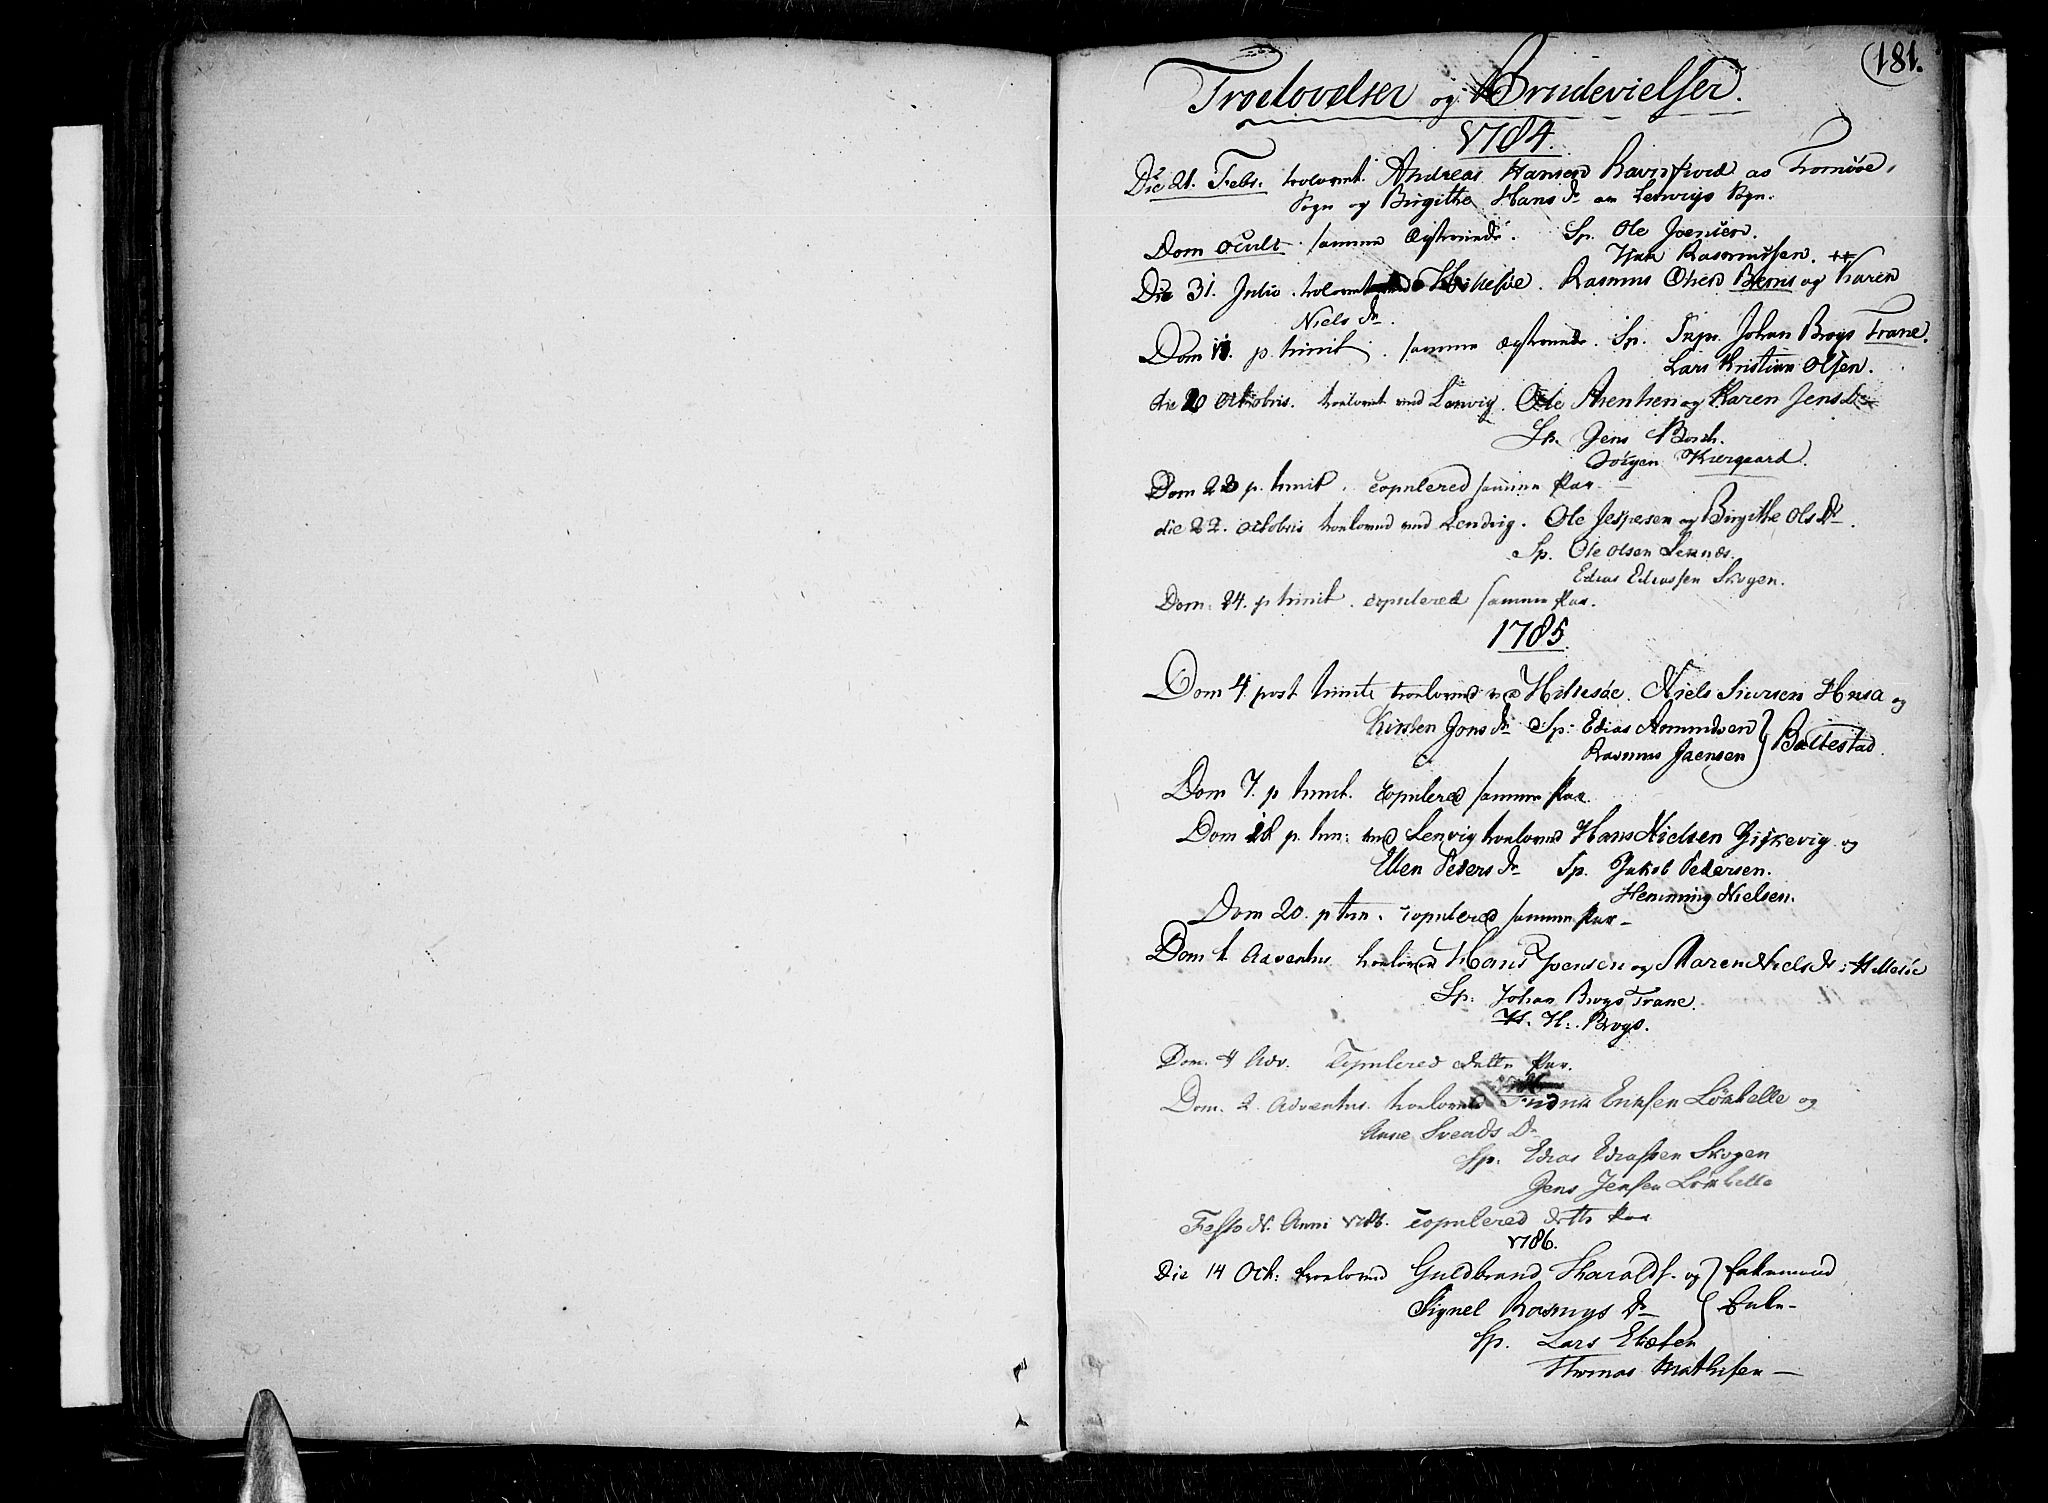 181.
Troelovelser og Brudevielser.
1784.
Die 21. Febr. trolovet Andreas Hansen Ravnfiord as Tromsøe
Sogn og Birgithe Hans Dr an Lenvigs Sogn.
Dom oculi samme Ægteviede. Sp. Ole Joensen.
Isak Rasmussen.
Die 31. Julii trolovet Hillesøe. Rasmus Olsen Berns og Karen
Niels Dr.
Dom 11. p. trinit. samme Ægteviede. Sp. Johan Brogs Trane.
Lars Kristian Olsen.
die 20 Octobris. troelovet ved Lenvig. Ole Arentsen og Karen Jens Dr
Sp. Jens Borch.
Jörgen Kiergaard.
Dom 23 p. trinit. copulered samme Par.
die 22. octobris troeloved ved Lendvig. Ole Jespersen og Birgithe Ols Dr.
Sp. Ole Olsen Leknæs.
Edias Ediassen Skogen.
Dom: 24. p trinit. copulered samme Par.
1785.
Dom 4. post trinit: troeloved ved Hillesøe. Niels Siursen Husa og
Kirsten Jons Dr Sp: Edias Amundsen
Rasmus Jaensen } Baltestad.
Dom 7. p trinit. copulered samme Par.
Dom 18 p. trin: ved Lenvig troeloved Hans Nielsen Giskevig og
Ellen Peders Dr Sp. Jakob Pedersen.
Hemming Nielsen.
Dom 20. p trin. copulered samme Par
Dom 1 Adventus troeloved Hans Joensen og Maren Niels Dr: Hillesøe
Sp: Johan Brogs Trane.
H. H: Brogs.
Dom. 4 Adv. Copulered dette Par.
Dom. 2. Adventus. troeloved Fridrik Eriksen Löxkelle og
Anne Svends Dr
Sp: Edias Ediassen Skogen
Jens Jensen Löxkelle
Festo N. Anni 1786. copulered dette Par
1786.
Die 14 Oct: troeloved Guldbrand Haralds. og } Enkemand
Signel Rasmus Dr } Enke-
Sp. Lars
Thomas Mathisen —